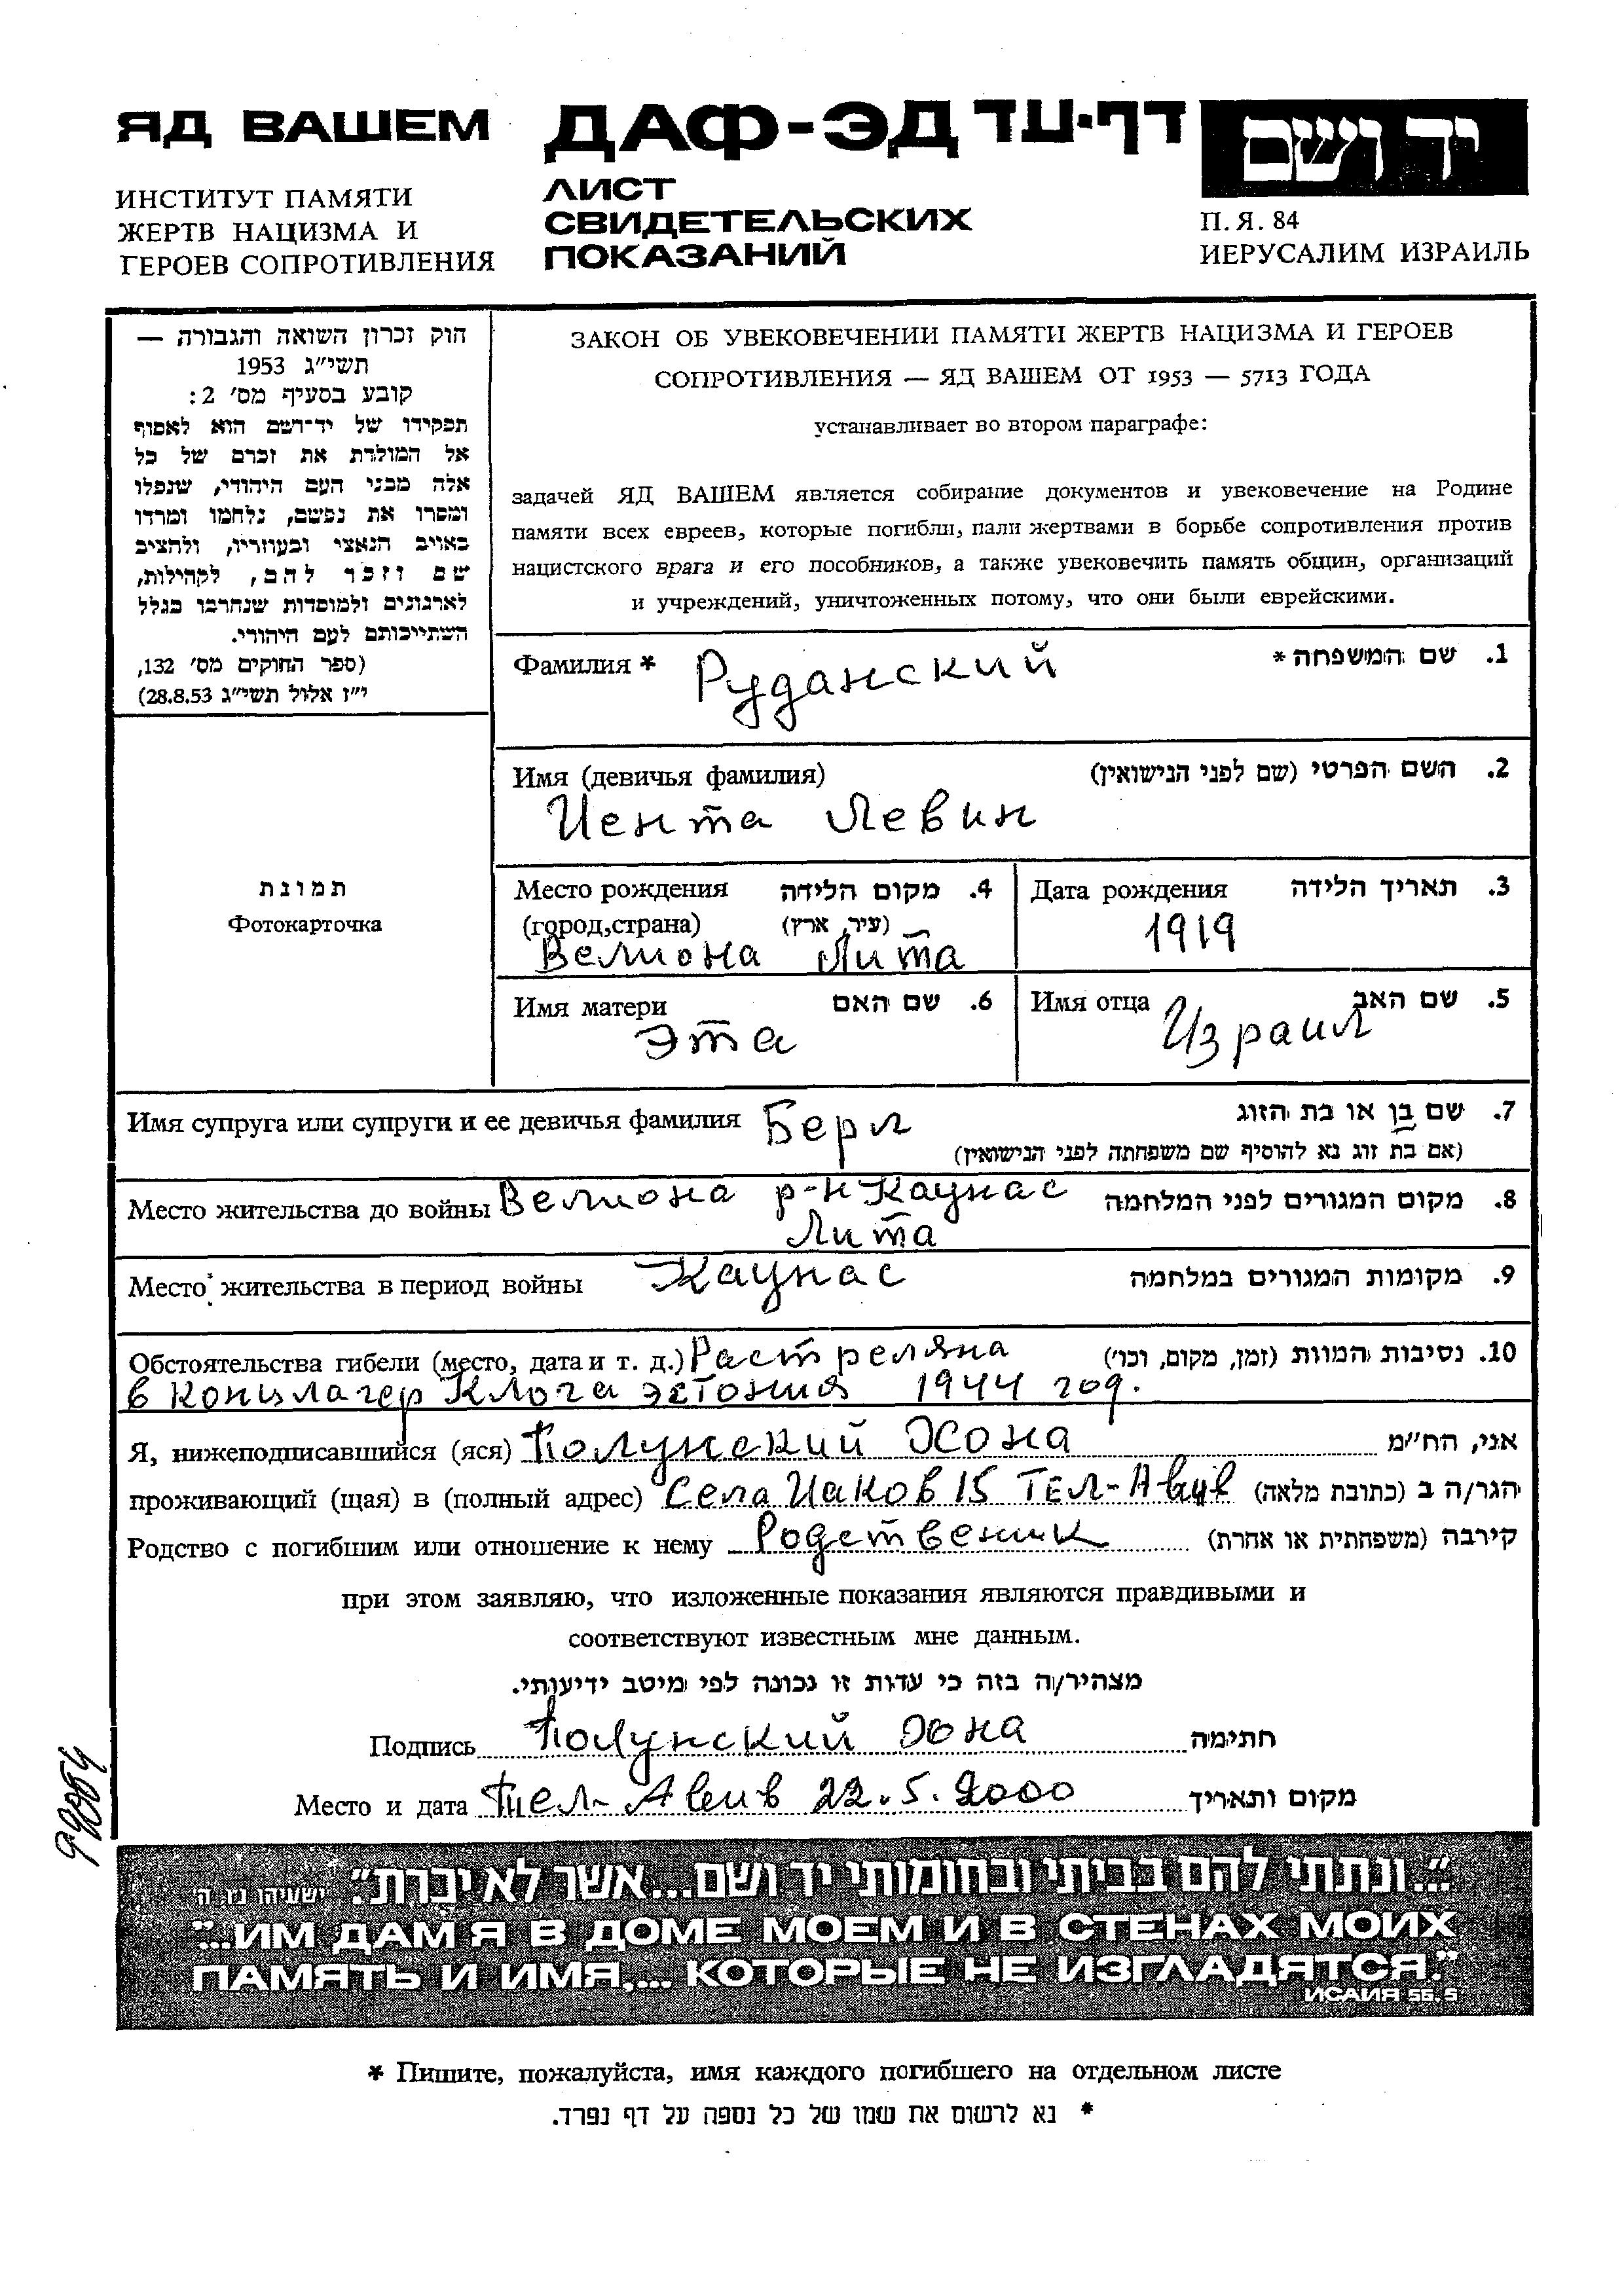 ЯД ВАШЕМ
ИНСТИТУТ ПАМЯТИ
ЖЕРТВ НАЦИЗМА И
ГЕРОЕВ СОПРОТИВЛЕНИЯ
ДАФ-ЭД דף-עד
ЛИСТ
СВИДЕТЕЛЬСКИХ
ПОКАЗАНИЙ
יד ושם
П. Я. 84
ИЕРУСАЛИМ ИЗРАИЛЬ
חוק זכרון השואה והגבורה —
תשי״ג 1953
קובע בסעיף מס׳ 2:
תפקידו של יד־ושם הוא לאסוף
אל המולדת את זכרם של כל
אלה מבני העם היהודי, שנפלו
ומסרו את נפשם, נלחמו ומרדו
באויב הנאצי ובעוזריו, ולהציב
שם וזכר להם, לקהילות,
לארגונים ולמוסדות שנחרבו בגלל
השתייכותם לעם היהודי.
(ספר החוקים מס׳ 132,
י״ז אלול תשי״ג 28.8.53)
ЗАКОН ОБ УВЕКОВЕЧЕНИИ ПАМЯТИ ЖЕРТВ НАЦИЗМА И ГЕРОЕВ
СОПРОТИВЛЕНИЯ — ЯД ВАШЕМ ОТ 1953 — 5713 ГОДА
устанавливает во втором параграфе:
задачей ЯД ВАШЕМ является собирание документов и увековечение на Родине
памяти всех евреев, которые погибли, пали жертвами в борьбе сопротивления против
нацистского врага и его пособников, а также увековечить память общин, организаций
и учреждений, уничтоженных потому, что они были еврейскими.
Фамилия * Руданский 1. שם המשפחה *
Имя (девичья фамилия) 2. השם הפרטי (שם לפני הנישואין)
Иента Левин
תמונת
Фотокарточка
Место рождения 4. מקום הלידה
(город,страна) (עיר, ארץ)
Велиона Лита
Дата рождения 3. תאריך הלידה
1919
Имя матери 6. שם האם
Эта
Имя отца 5. שם האב
Израил
Имя супруга или супруги и ее девичья фамилия Берл 7. שם בן או בת הזוג
(אם בת זוג נא להוסיף שם משפחתה לפני הנישואין)
Место жительства до войны Велиона р-н Каунас 8. מקום המגורים לפני המלחמה
Лита
Место жительства в период войны Каунас 9. מקומות המגורים במלחמה
Обстоятельства гибели (место, дата и т. д.) Растреляна 10. נסיבות המוות (זמן, מקום, וכו׳)
в концлагер Клога эстония 1944 год.
Я, нижеподписавшийся (яся) Полунский Хона אני, הח״מ
проживающий (щая) в (полный адрес) Села Иаков 15 Тел-Авив הגר/ה ב (כתובת מלאה)
Родство с погибшим или отношение к нему Родственик קירבה (משפחתית או אחרת)
при этом заявляю, что изложенные показания являются правдивыми и
соответствуют известным мне данным.
מצהיר/ה בזה כי עדות זו נכונה לפי מיטב ידיעותי.
Подпись Полунский Хона חתימה
Место и дата Тел-Авив 22.5.2000 מקום ותאריך
״...ונתתי להם בביתי ובחומותי יד ושם...אשר לא יכרת״. ישעיהו נ״ו, ה׳
"...ИМ ДАМ Я В ДОМЕ МОЕМ И В СТЕНАХ МОИХ
ПАМЯТЬ И ИМЯ,... КОТОРЫЕ НЕ ИЗГЛАДЯТСЯ."
ИСАИЯ 56, 5
* Пишите, пожалуйста, имя каждого погибшего на отдельном листе
* נא לרשום את שמו של כל נספה על דף נפרד.